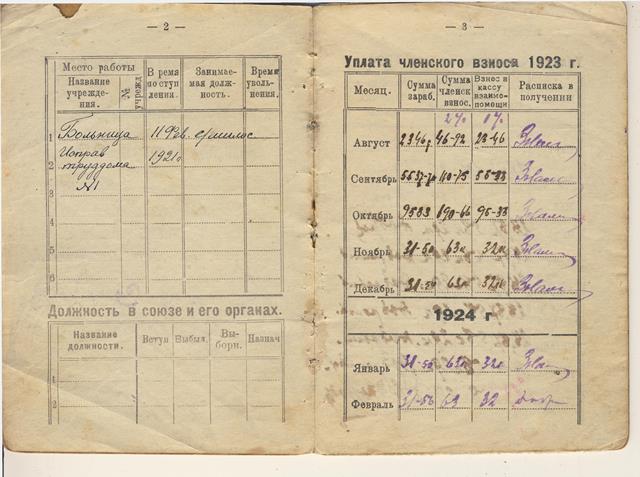 — 2 —
Место работы
Название учрежде-ния.
№ учрежд
В ремя поступ ления.
Занимае-мая долж-ность.
Время уволь-нения.
1 Больница 11 Фев.
2 Исправ 1921г
труддома
3 №1
4
5
6
Должность в союзе и его органах.
Название должности.
Вступ
Выбыл.
Вы-борн.
Назнач
1
2
— 3 —
Уплата членского взноса 1923 г.
Месяц.
Сумма зараб.
Сумма членск взнос.
Взнос в кассу взаимо-помощи
Расписка в получении
2% 1%
Август 2346 46-92 23-46
Сентябрь 5537-70 110-75 55-38
Октябрь 9533 190-66 95-33
Ноябрь 31-50 63к 32к
Декабрь 31-50 63к 32к
1924 г
Январь 31-50 63к 32к
Февраль 31-50 63 32